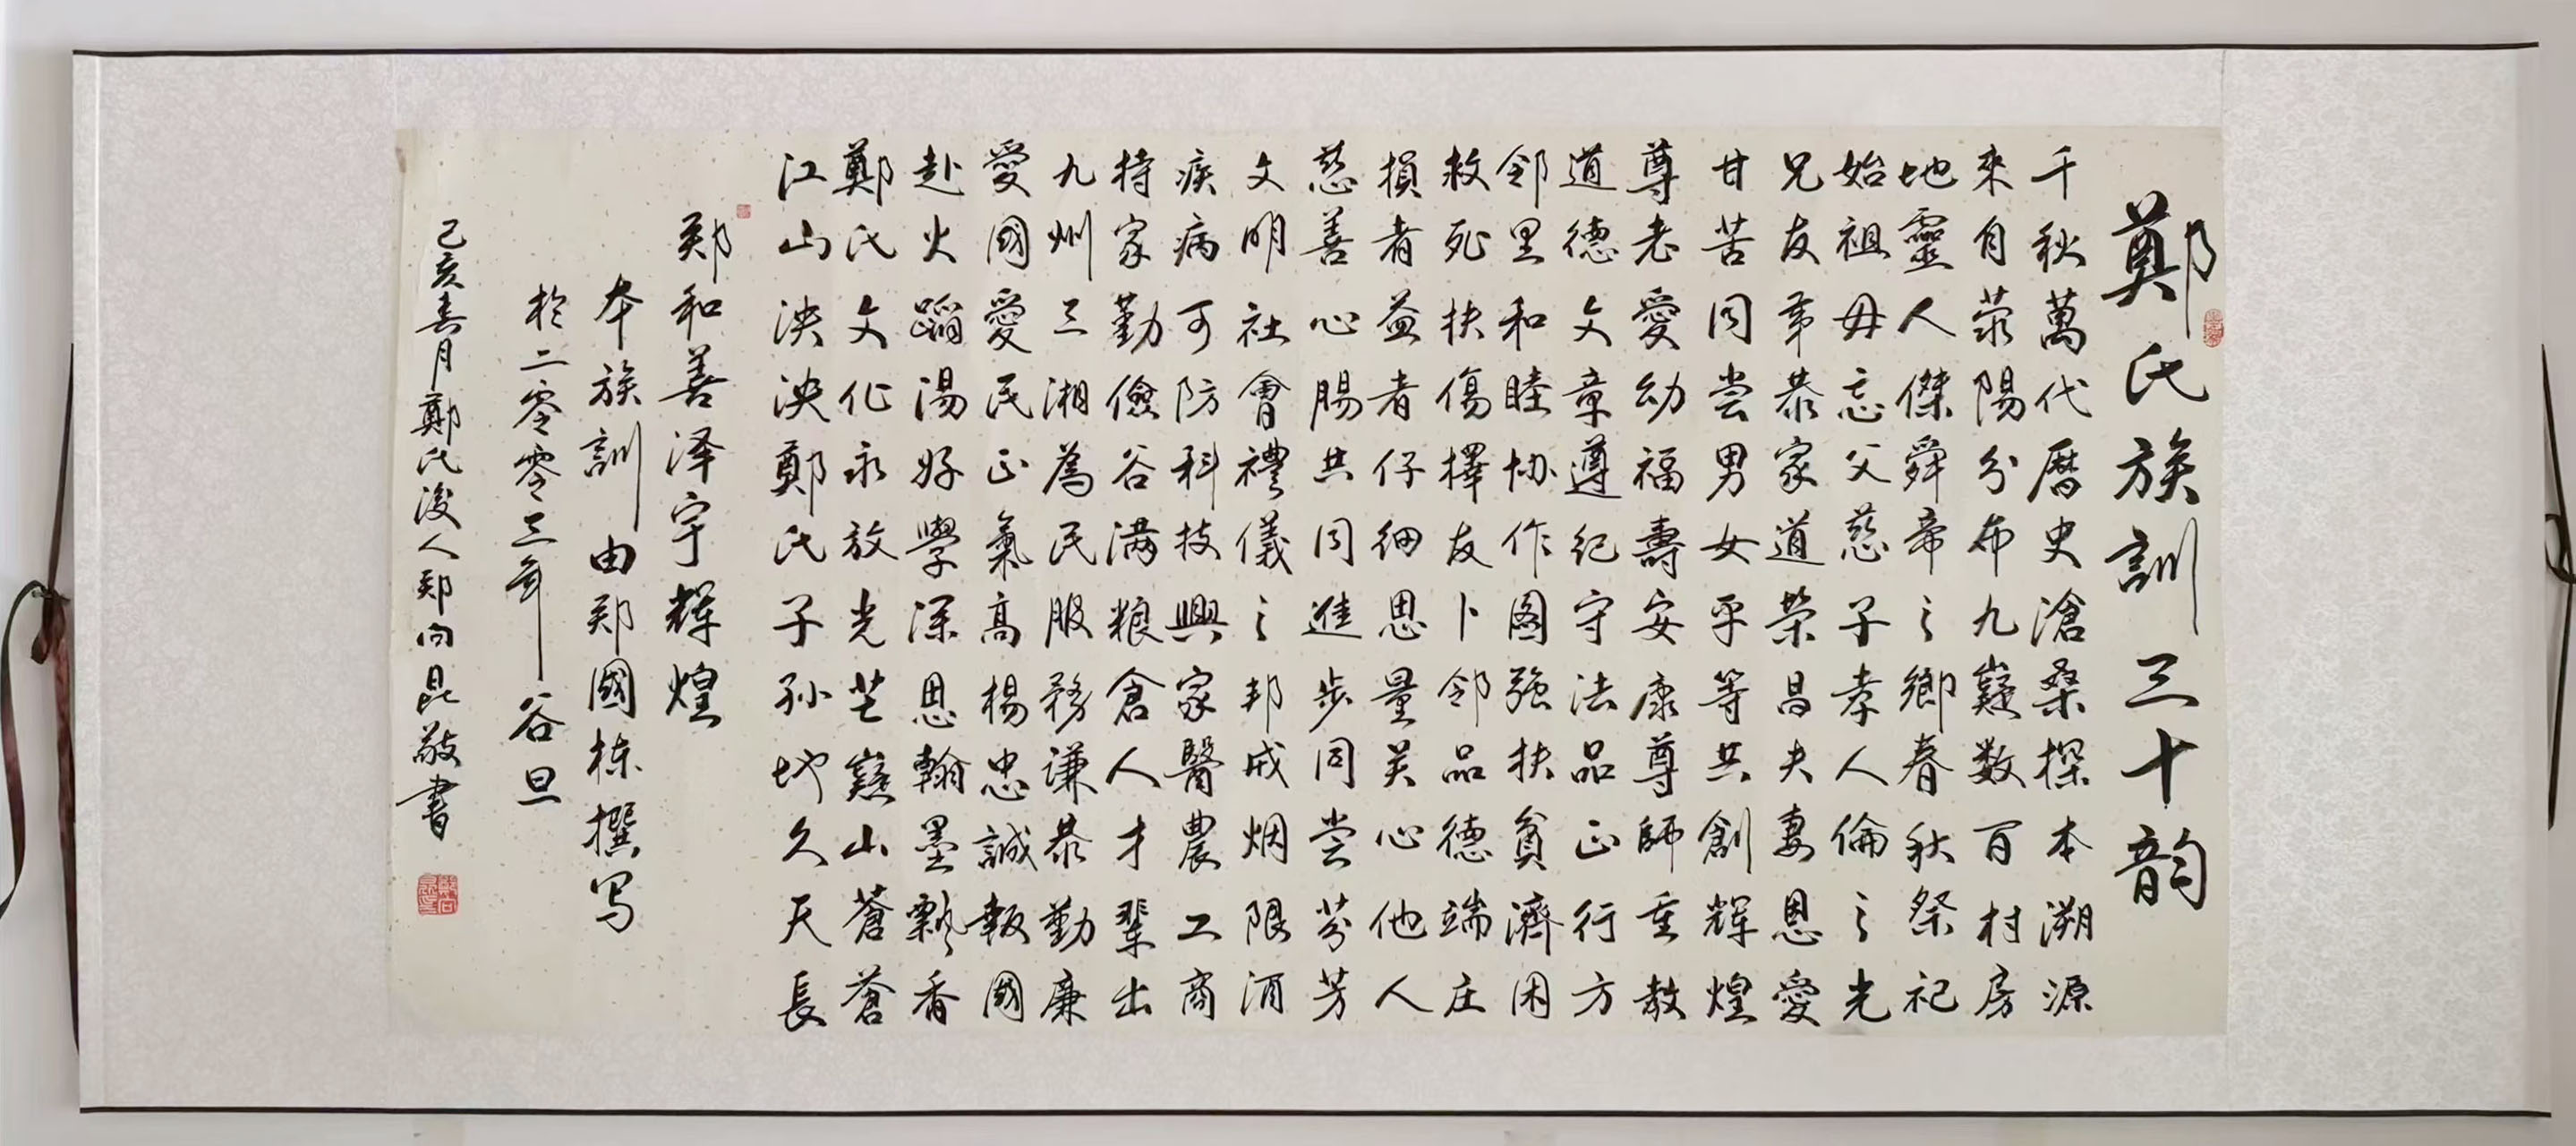 鄭氏族訓三十韵
千秋萬代曆史滄桑探本溯源
來自荥陽分布九嶷数百村房
地靈人傑舜帝之鄉春秋祭祀
始祖毋忘父慈子孝人倫之光
兄友弟恭家道荣昌夫妻恩愛
甘苦同尝男女平等共創辉煌
尊老愛幼福壽安康尊師重教
道德文章遵纪守法品正行方
邻里和睦协作图强扶貧濟困
救死扶傷擇友卜邻品德端庄
損者益者仔细思量关心他人
慈善心腸共同進步同尝芬芳
文明社會禮儀之邦戒烟限酒
疾病可防科技興家醫農工商
持家勤儉谷满粮倉人才輩出
九州三湘為民服務谦恭勤廉
愛國愛民正氣高楊忠誠報國
赴火蹈湯好學深思翰墨飄香
鄭氏文化永放光芒嶷山蒼蒼
江山泱泱鄭氏子孙地久天長
郑和善泽宇辉煌
本族訓由郑國栋撰写
於二零零三年谷旦
己亥春月鄭氏後人郑向昆敬書